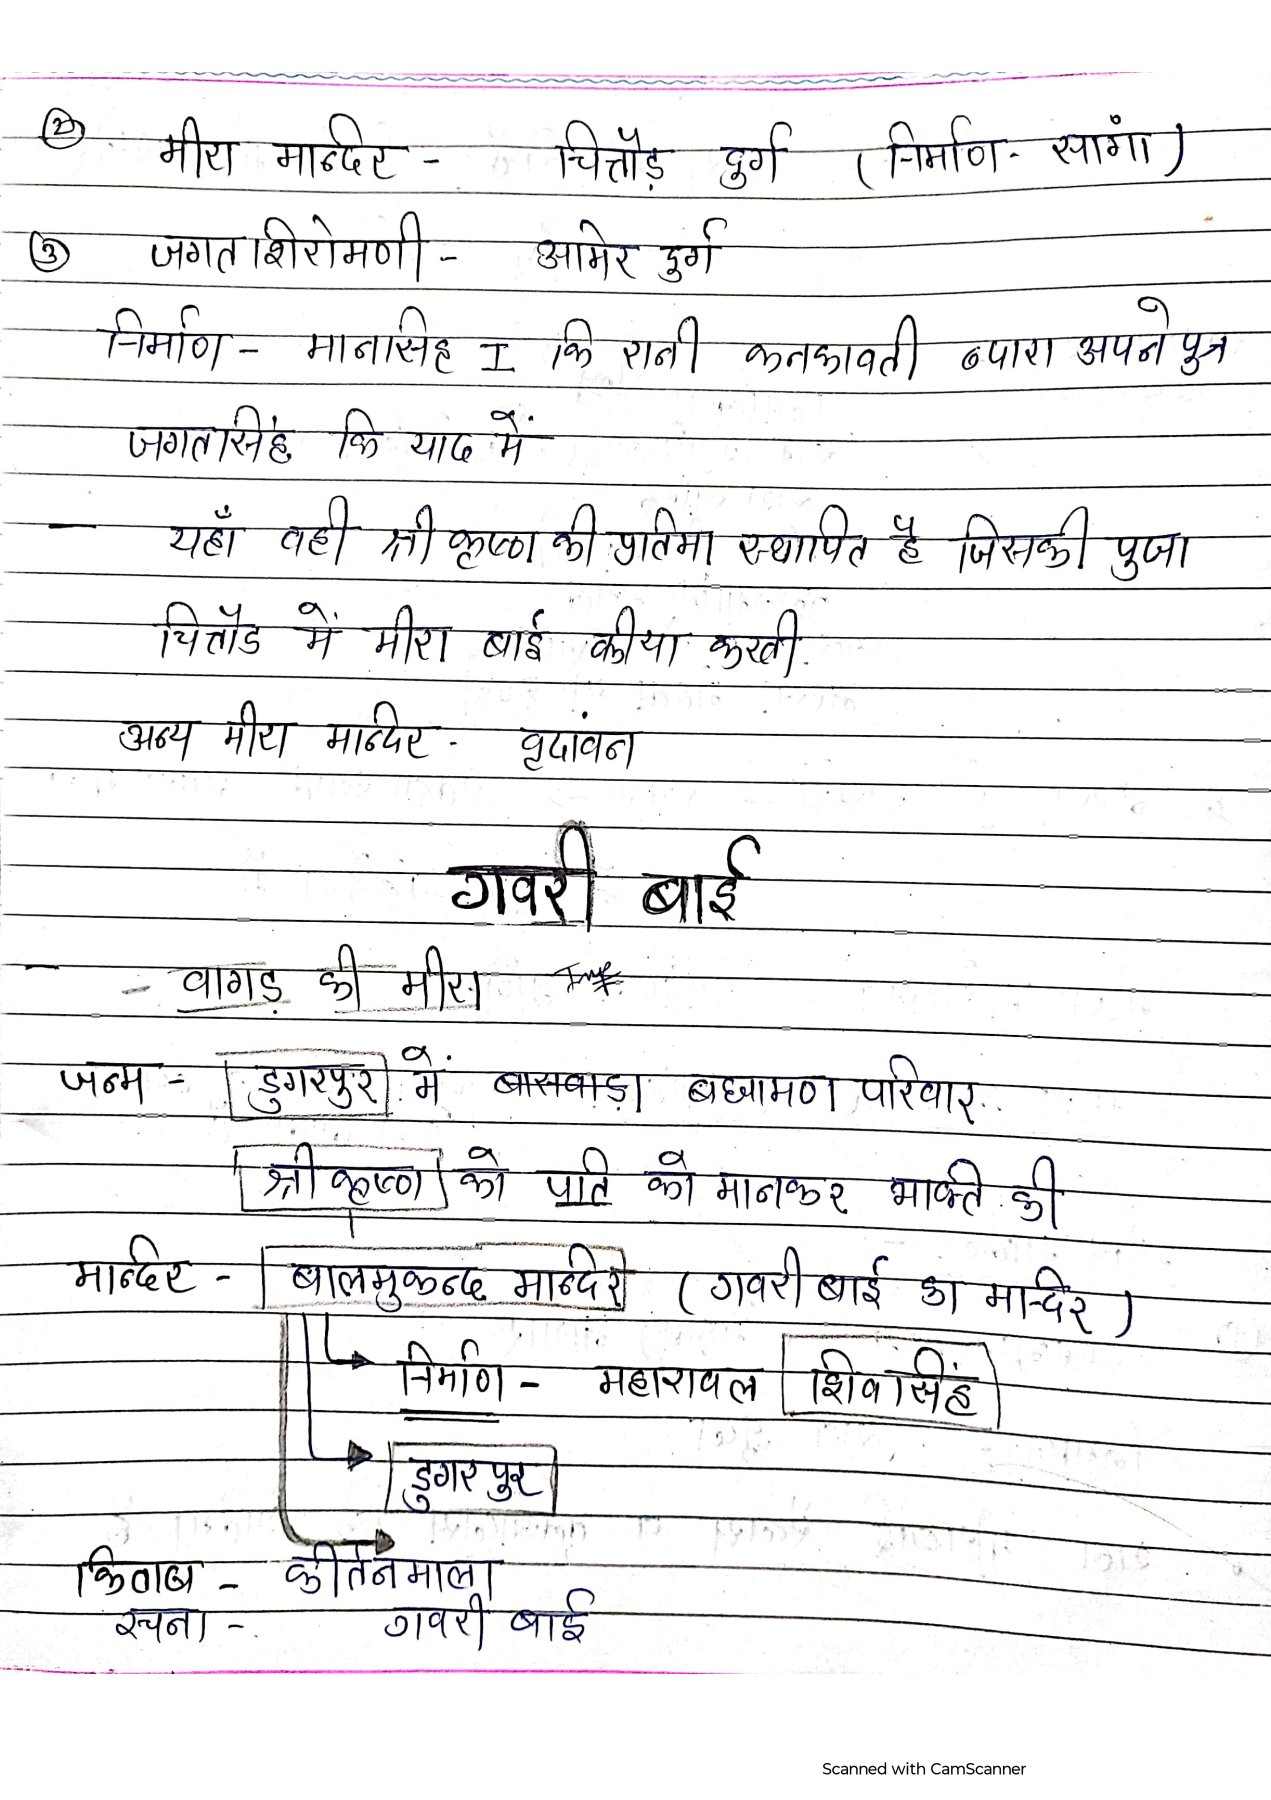 ② मीरा मन्दिर - चित्तौड़ दुर्ग (निर्माण - सांगा)
③ जगत शिरोमणी - आमेर दुर्ग
निर्माण - मानसिंह I कि रानी कनकावती द्वारा अपने पुत्र
जगतसिंह कि याद में
- यहाँ वही श्री कृष्ण की प्रतिमा स्थापित है जिसकी पुजा
चित्तौड में मीरा बाई कीया करती.
अन्य मीरा मन्दिर - वृदांवन
गवरी बाई
- वागड़ की मीरा Imp
जन्म - डुगरपुर में बासवाड़ा ब्राह्मण परिवार
श्री कृष्ण को पति को मानकर भक्ति की
मन्दिर - बालमुकन्द मन्दिर (गवरी बाई का मन्दिर)
निर्माण - महारावल शिवसिंह
डुगरपुर
किताब - कीर्तनमाला
रचना - गवरी बाई
Scanned with CamScanner